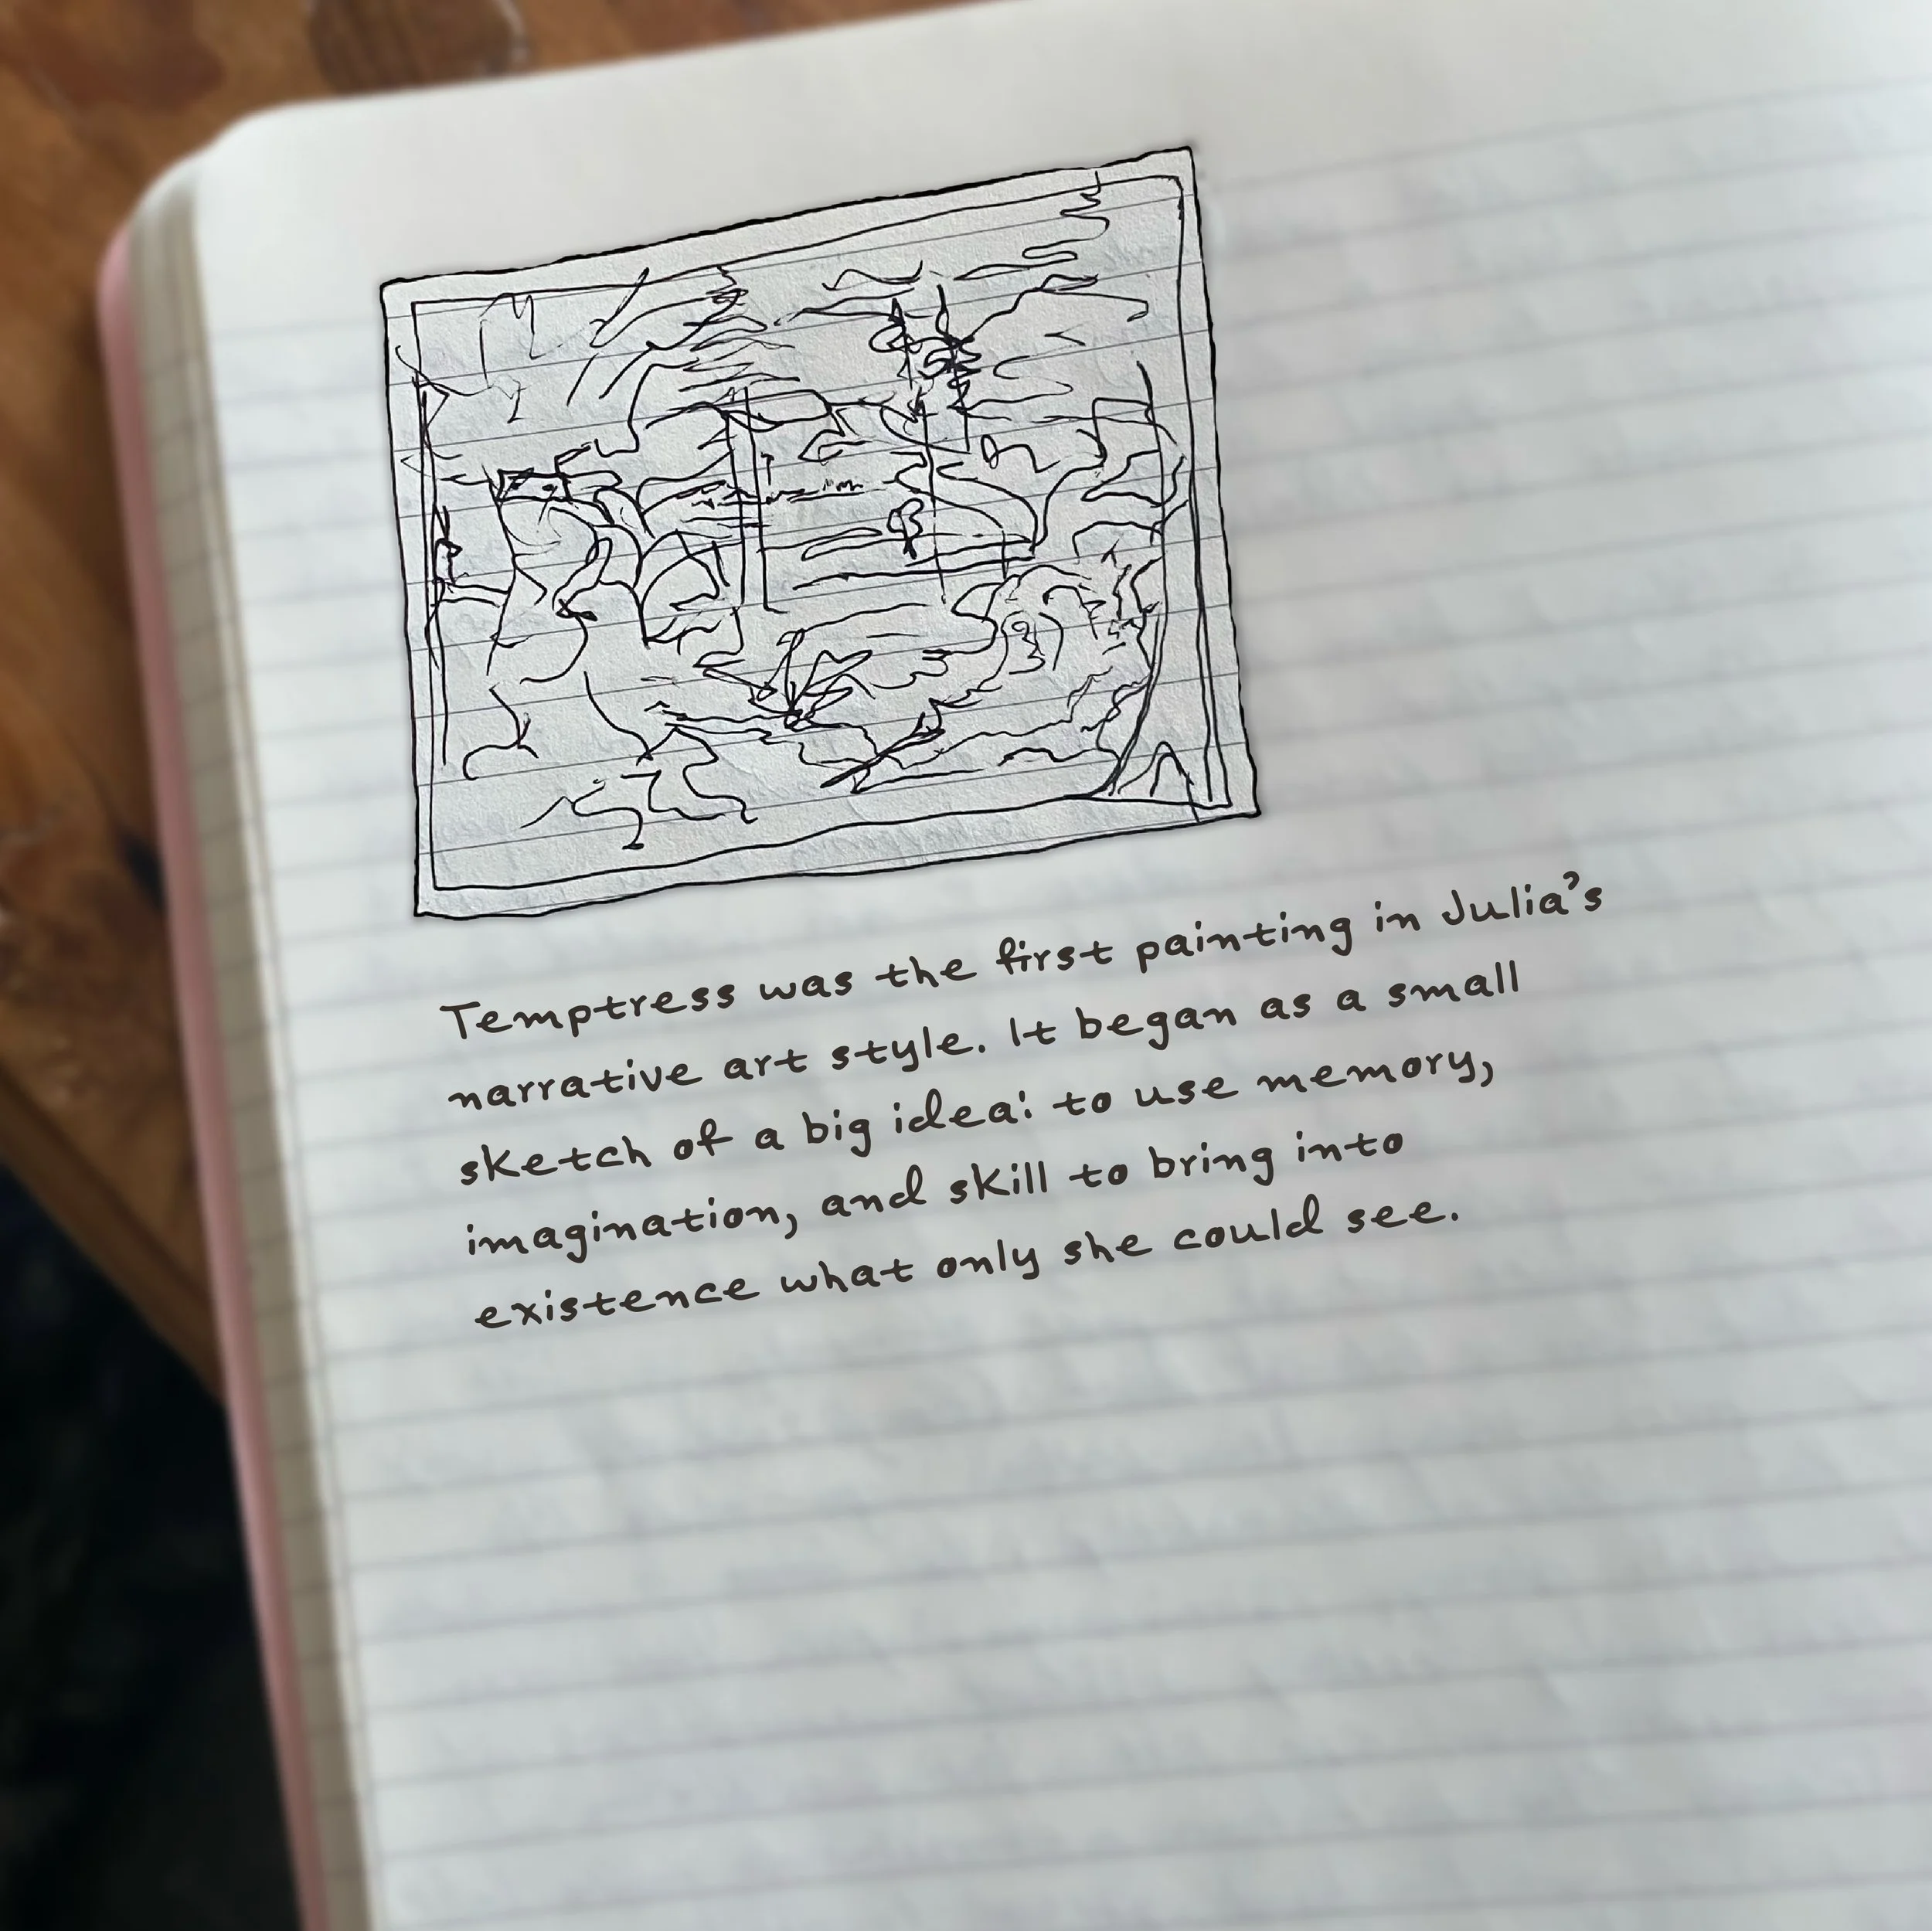 Temptress was the first painting in Julia's
narrative art style. It began as a small
sketch of a big idea: to use memory,
imagination, and skill to bring into
existence what only she could see.